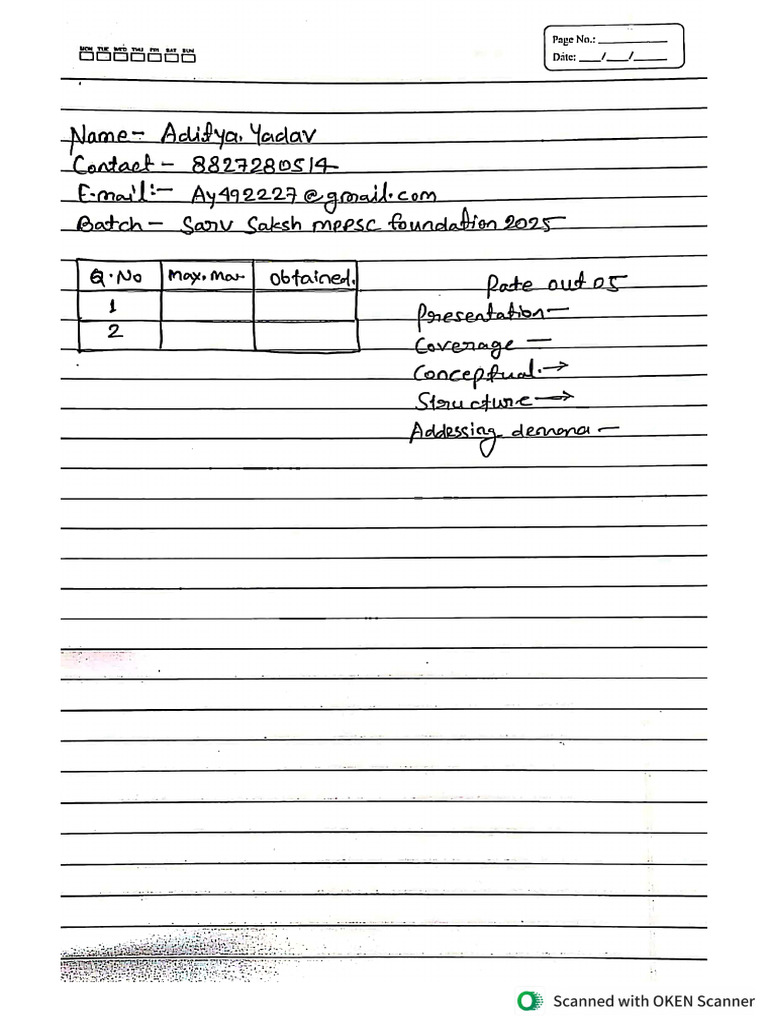 MON TUE WED THU FRI SAT SUN
Page No.:
Date: __/__/__
Name- Aditya Yadav
Contact - 8827280514
E-mail:- Ay492227@gmail.com
Batch - Sarv Saksh mppsc foundation 2025
Q.No max.mar obtained.
1
2
Rate out 05
Presentation-
Coverage -
Conceptual.→
Structure→
Addessing demana -
Scanned with OKEN Scanner